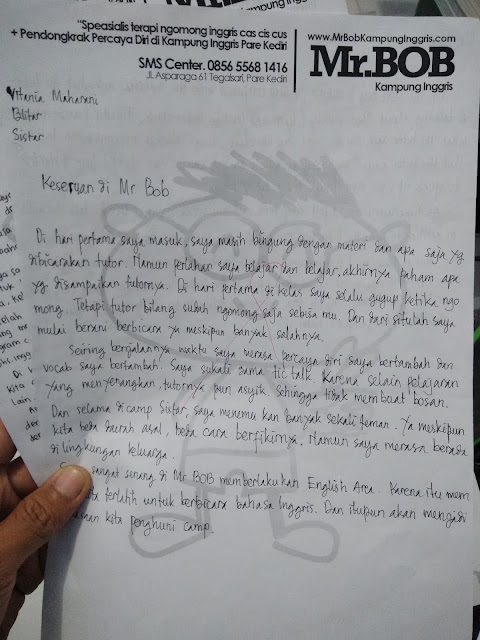 "Speasialis terapi ngomong Inggris cas cis cus
+ Pendongkrak Percaya Diri di Kampung Inggris Pare Kediri
SMS Center. 0856 5568 1416
Jl. Asparaga 61 Tegalsari, Pare Kediri
www.MrBobKampungInggris.com
Mr.BOB
Kampung Inggris
Vitania Maharani
Blitar
Sistar
Keseruan di Mr Bob
Di hari pertama saya masuk, saya masih bingung dengan materi dan apa saja yg
dibicarakan tutor. Namun perlahan saya belajar dan belajar, akhirnya paham apa
yg disampaikan tutornya. Di hari pertama di kelas saya selalu gugup ketika ngo
mong. Tetapi tutor bilang sudah ngomong saja sebisa mu. Dan dari situlah saya
mulai berani berbicara ya meskipun banyak salahnya.
Seiring berjalannya waktu saya merasa percaya diri saya bertambah dan
vocab saya bertambah. Saya sukali sama tic talk. Karena selain pelajaran
yang menyenangkan, tutornya pun asyik. Sehingga tidak membuat bosan.
Dan selama di camp Sistar, saya menemu kan banyak sekali teman. Ya meskipun
kita beda daerah asal, beda cara berfikirnya. Namun saya merasa berada
di lingkungan keluarga.
sangat senang di Mr BOB memberlakukan English Area. Karena itu mem
terlatih untuk berbicara bahasa Inggris. Dan itupun akan menjadi
kita penghuni camp.